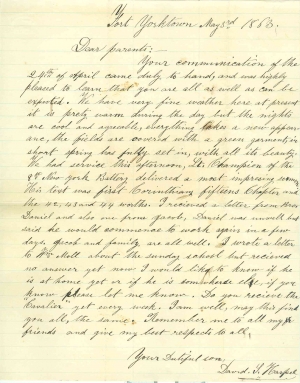 Y
Fort Yorktown May 3rd 1863.
Dear parents:—
Your communication of the
29th of April came duly to hand, and was highly
pleased to learn that you are all as well as can be
expected. We have very fine weather here at present
it is prety warm during the day, but the nights
are cool and agreeable, everything takes a new appear-
ance, the fields are covered with a green garment, in
short, spring has fully set in, with all its beauty.
We had service this afternoon, Lt. Champion of the
8th New York Battery delivered a most impresing
His text was first Corinthians fifteens Chapter and
the 42, 43 and 44 verses. I recieved a letter from Bros
Daniel and also one from Jacob, Daniel was unwell but
said he would commance to work again in a few
days, Jacob and family are all well. I wrote a letter
to Wm Moll about the sunday school but recieved
no answer yet now I would like to know if he
is at home yet or if he is somwhere else, if you
know pleas let me know. Do you recieve the
yet every week. I am well, may this find
you all, the same. Remember me to all my
friends and give my best respects to all,
Your Dutiful son,
David